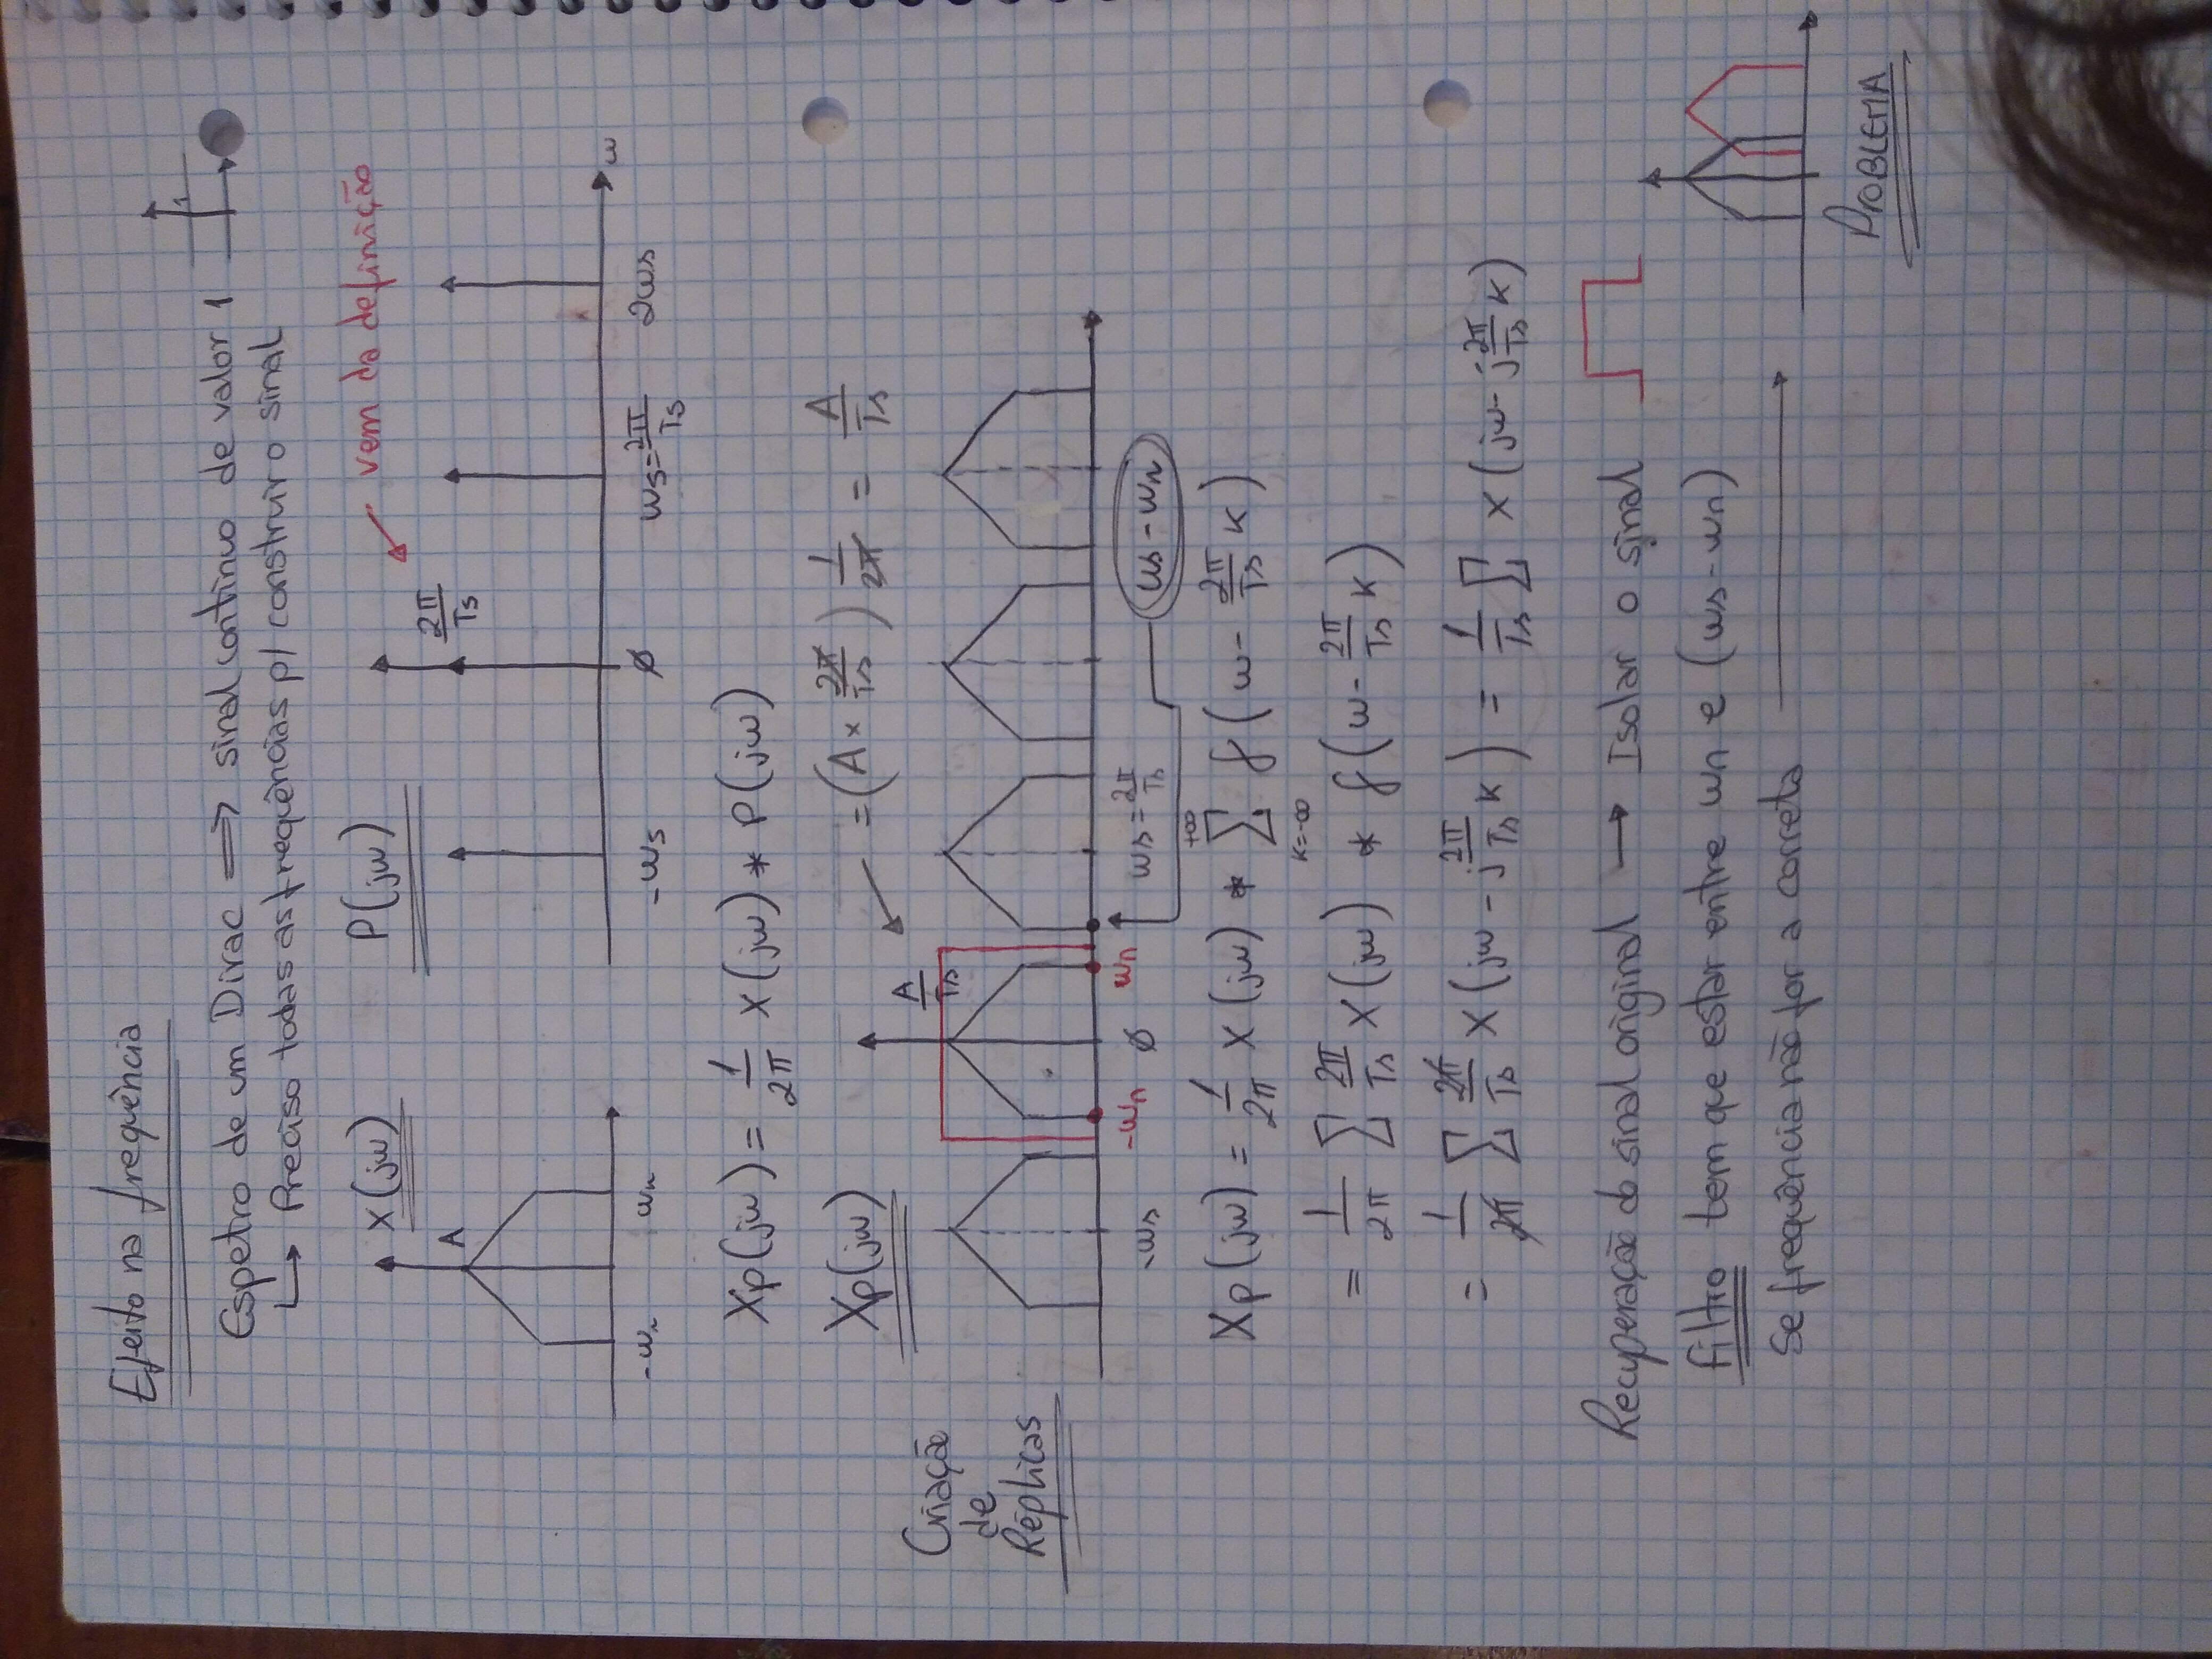 Efeito na frequência
Espetro de um Dirac ⟹ sinal contínuo de valor 1
1
↳ Preciso todas as frequências p/ construir o sinal
X(jω)
A
-ωn ωn
P(jω)
vem da definição
2π/Ts
-ωs ∅ ωs=2π/Ts 2ωs ω
Xp(jω) = 1/2π X(jω) * P(jω)
Xp(jω)
= (A × 2π/Ts) 1/2π = A/Ts
A/Ts
Criação
de
Réplicas
-ωs -ωn ∅ ωn ωs = 2π/Ts ωs - ωn
Xp(jω) = 1/2π X(jω) * ∑ k=-∞ +∞ δ(ω - 2π/Ts k)
= 1/2π ∑ 2π/Ts X(jω) * δ(ω - 2π/Ts k)
= 1/2π ∑ 2π/Ts X(jω - j 2π/Ts k) = 1/Ts ∑ X(jω - j 2π/Ts k)
Recuperação do sinal original → Isolar o sinal
Filtro tem que estar entre ωn e (ωs - ωn)
Se frequência não for a correta →
PROBLEMA